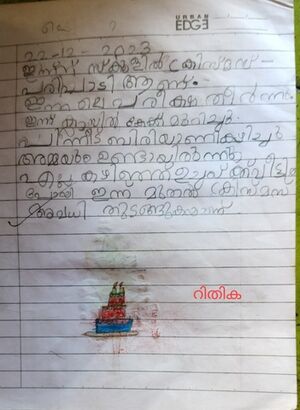 URBAN
EDGE
22-12-2023
ഇന്ന് സ്കൂളിൽ ക്രിസ്മസ്
പരിപാടി ആണ്.
ഇന്നലെ പരീക്ഷ തീർന്നു.
ഇന്ന് ക്ലാസിൽ കേക്ക് മുറിച്ചു.
പിന്നീട് ബിരിയാണി കഴിച്ചു
അമ്മയും ഉണ്ടായിരുന്നു.
എല്ലാം കഴിഞ്ഞ് ഉച്ചക്ക് വീട്ടിൽ
പോയി ഇന്ന് മുതൽ ക്രിസ്മസ്
അവധി തുടങ്ങുകയാണ്
റിതിക